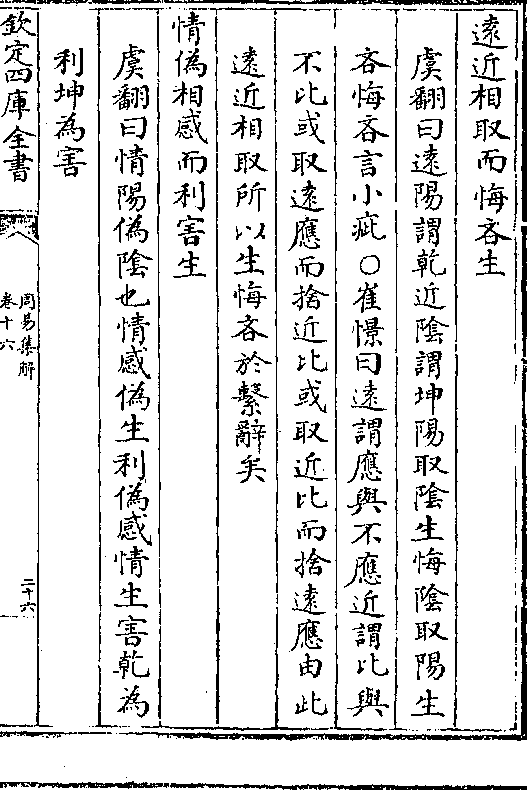 遠近相取而悔吝生
虞翻曰遠陽謂乾近隂謂坤陽取隂生悔隂取陽生
吝悔吝言小疵○崔憬曰遠謂應與不應近謂比與
不比或取遠應而捨近比或取近比而捨遠應由此
遠近相取所以生悔吝於繫辭矣
情偽相感而利害生
虞翻曰情陽偽隂也情感偽生利偽感情生害乾為
利坤為害
欽定四庫全書
周易集解
卷十六
二十六